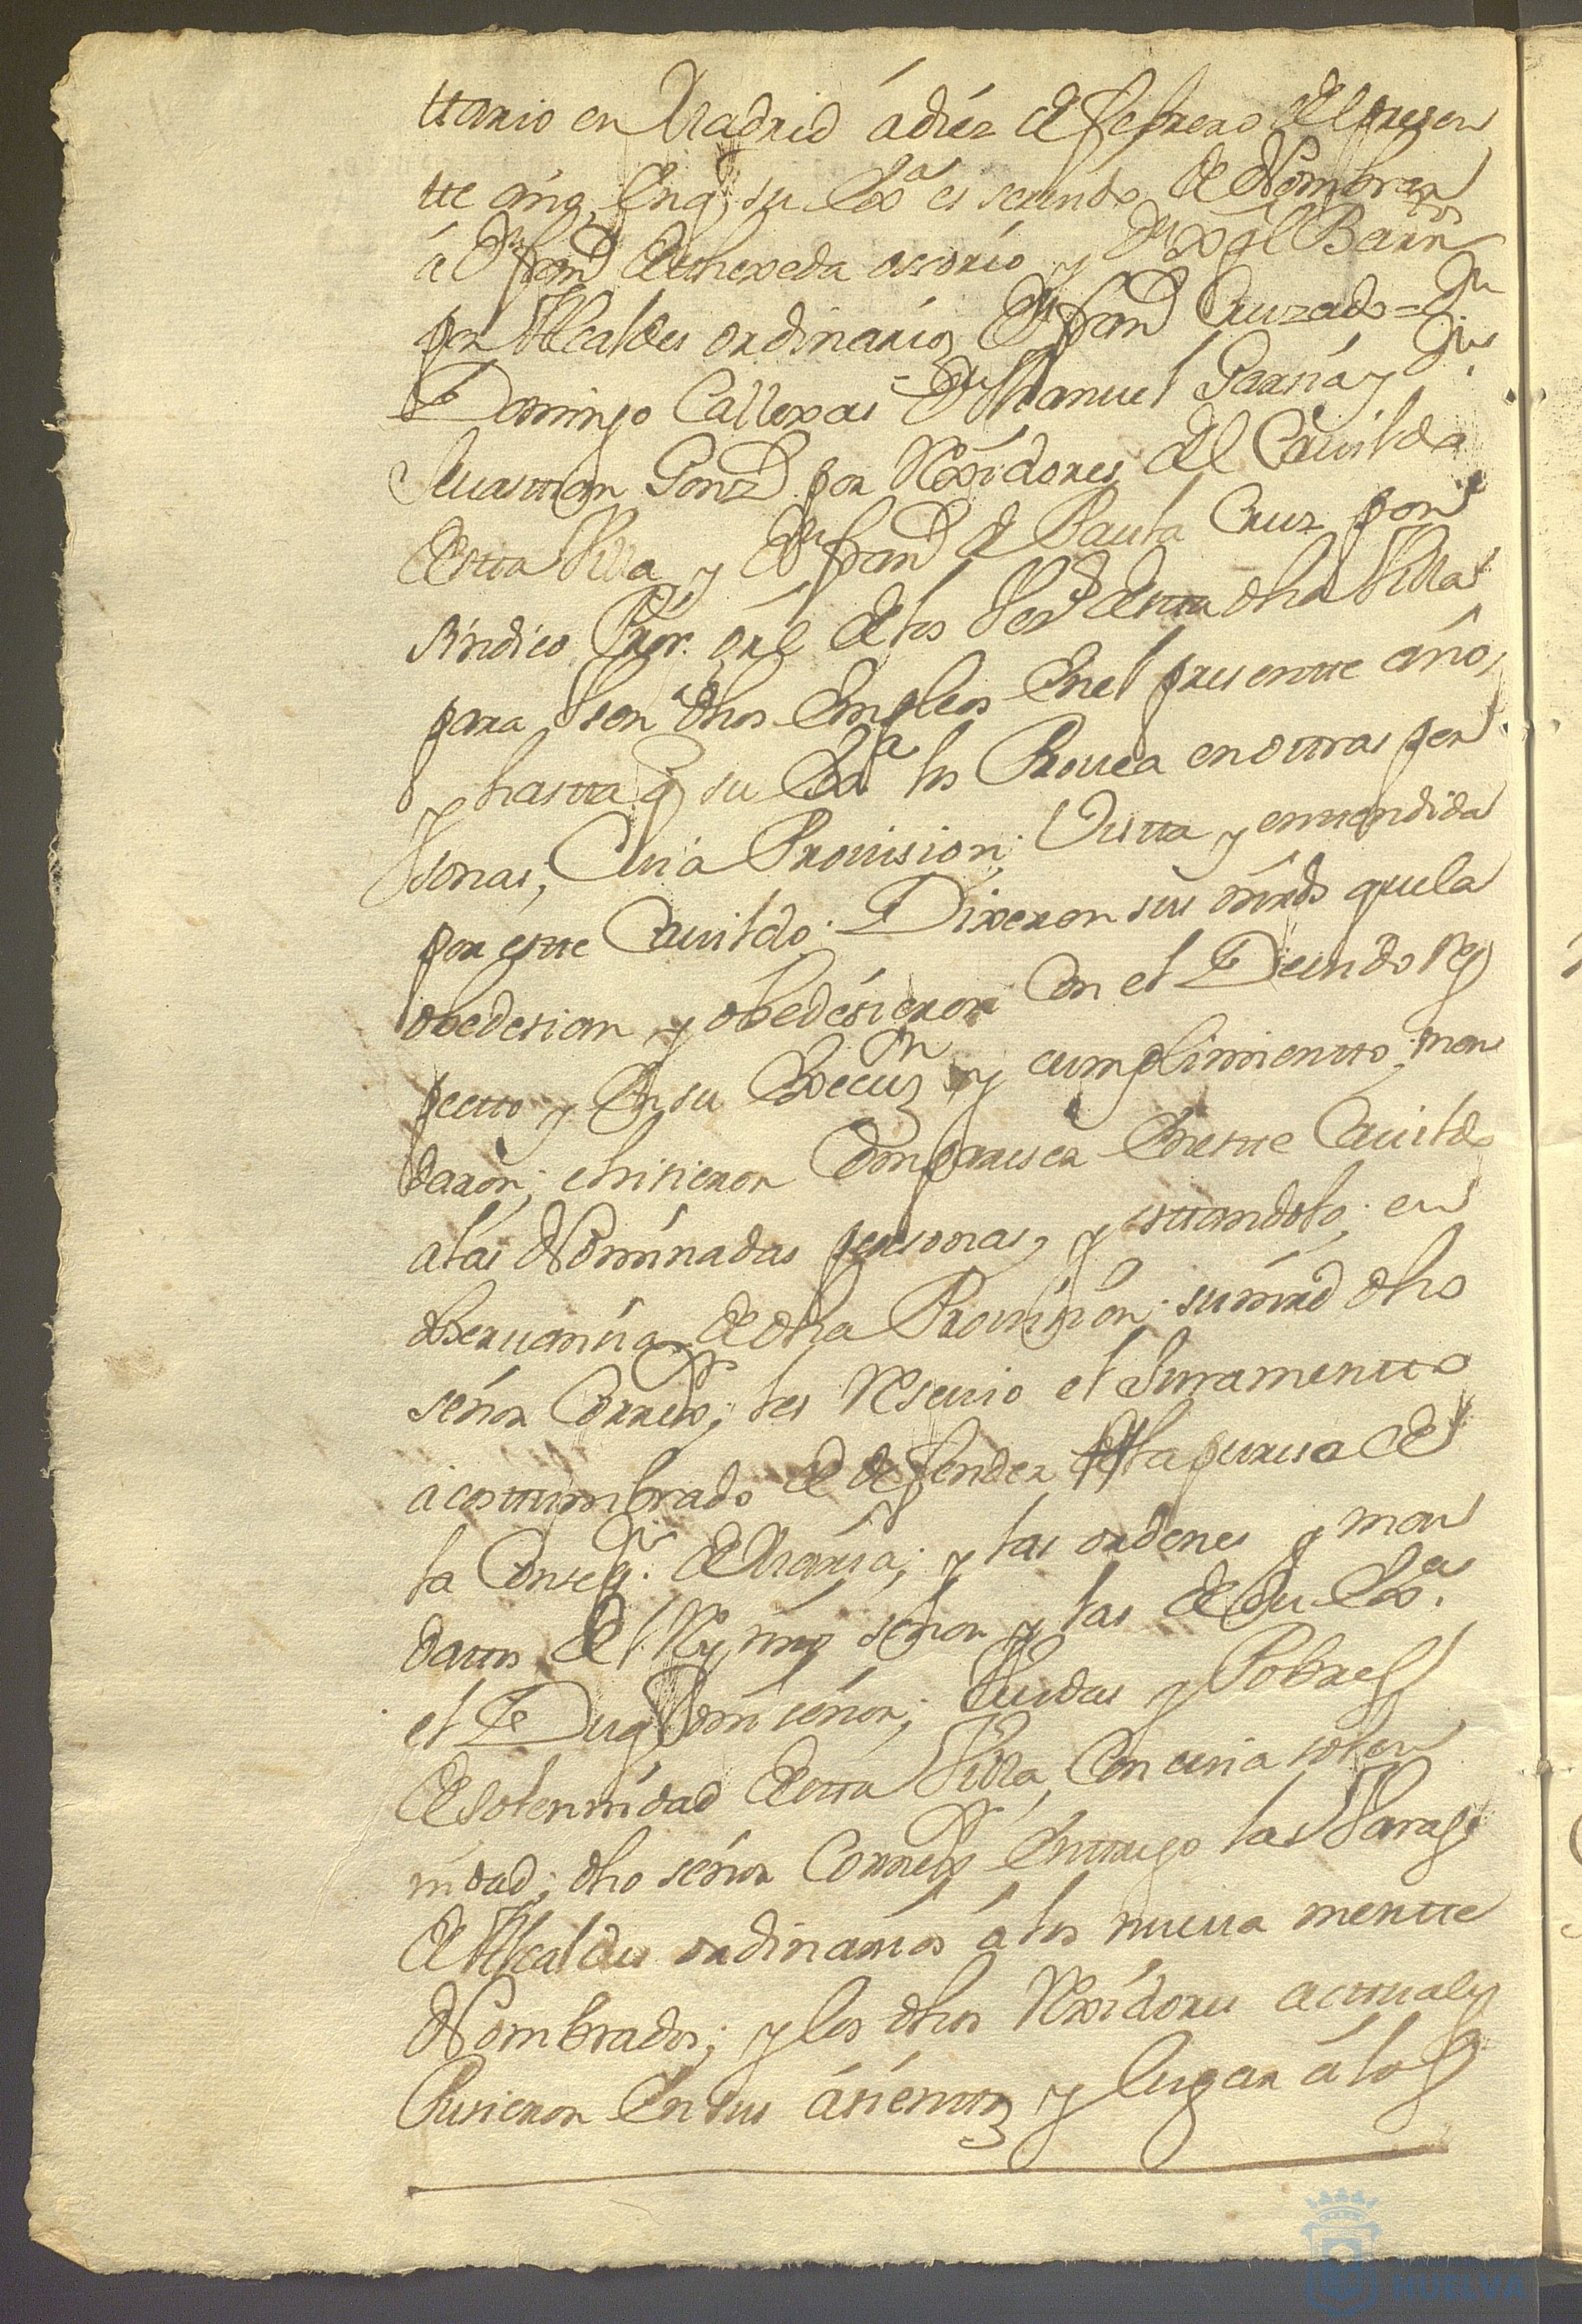 ttario en Madrid â diez de febrero del presen
tte año, en q su Exª es seruido de Nombrar
â Dn franco de thexeda ossorio y Dn Barn
por Alcaldes ordinarios Dn franco Cruzado = Dn
Domingo Callexas = Dn Manuel Garsia y Dn
Seuasttian Gonz por Rexidores del Cauildo
desta Villa y Dn franco de Paula Cruz por
Síndico Pror. grl de los Vezs destta dha Villa
para Usen dhos Empleos En el presentte año,
y hastta q su Exª los Prouea en ottras per
sonas; Cuia Prouision; Vistta y enttendida
por estte Cauildo; Dixeron sus mrds que la
obedesian y obedésieron Con el Deuido Res
pectto y En su Execuzn y cumplimientto; man
daron; e hisieron Comparuser En estte Cauildo
a las Nominadas personas, y esttandolo; en
obseruansia de dha Prouision; su mrd dho
señor Correxr; les Reseuio el Juramentto
acosttumbrado de defender la puresa de
la Consepn. de Maria; y las ordenes y man
dattos del Rey nro señor y las de Su Exª.
el Duq mi señor; Viudas y Pobres
de solemnidad destta Villa, Con cuia solem
nidad; dho señor Correxr Enttrego las Varas
de Alcaldes ordinarios â los nueua mentte
Nombrados; y los dhos Rexidores acttuales
Pusieron En sus âsienttos y lugar â los
HUELVA